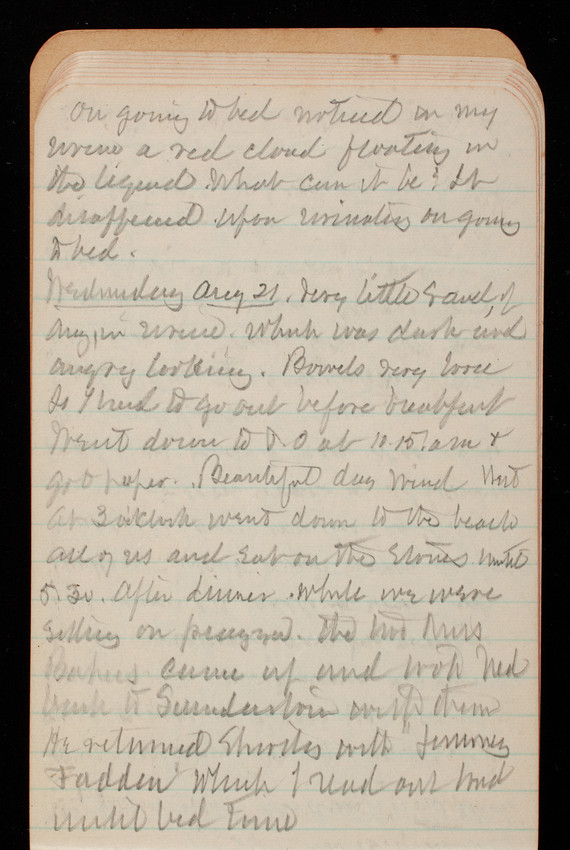 On going to bed noticed in my
urine a red cloud floating in
the liquid. What can it be? It
disappeared upon urinating on going
to bed.
Wednesday Aug 21. Very little gravel, if
any, in urine. Which was dark and
angry looking. Bowels very loose
So I had to go out before breakfast
Went down to P.O at 10.15 am &
got paper. Beautiful day wind
At 3 o'clock went down to the beach
all of us and sat on the stones until
5.30. After dinner. While we were
sitting on piazza. The two Miss
came up and took Ned
back to with them
He returned with "
Fadden" Which I read out loud
until bed time